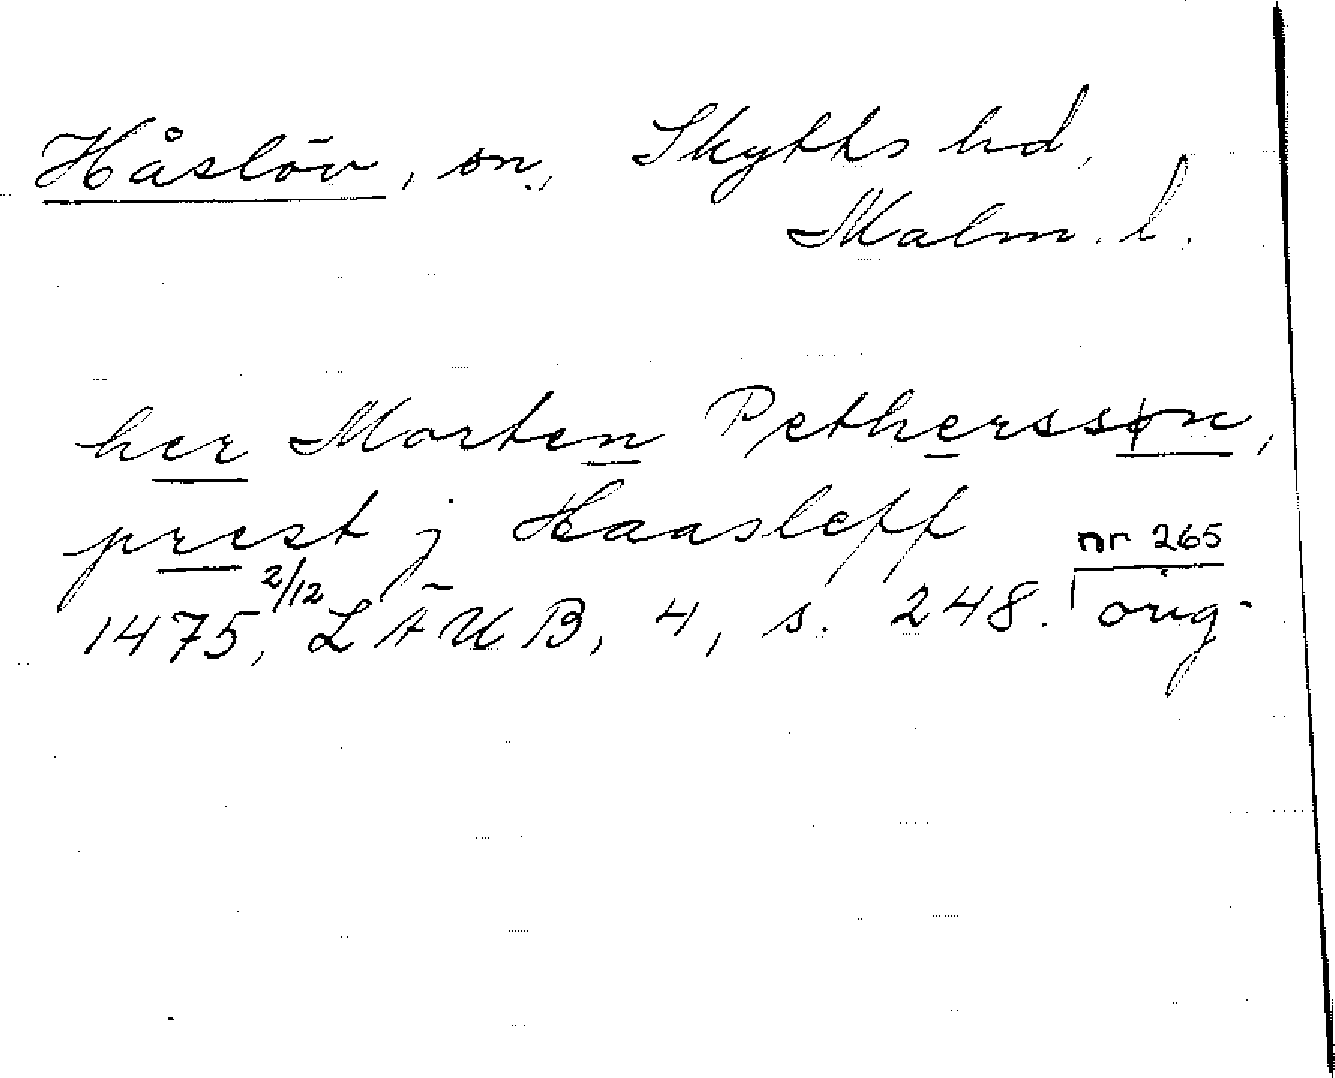 Håslöv, sn., Skytts hd,
Malm. l.
her Morten Petherssøn,
prest j Haasleff
1475, 2/12 LÄUB, 4, s. 248. nr 265 orig.